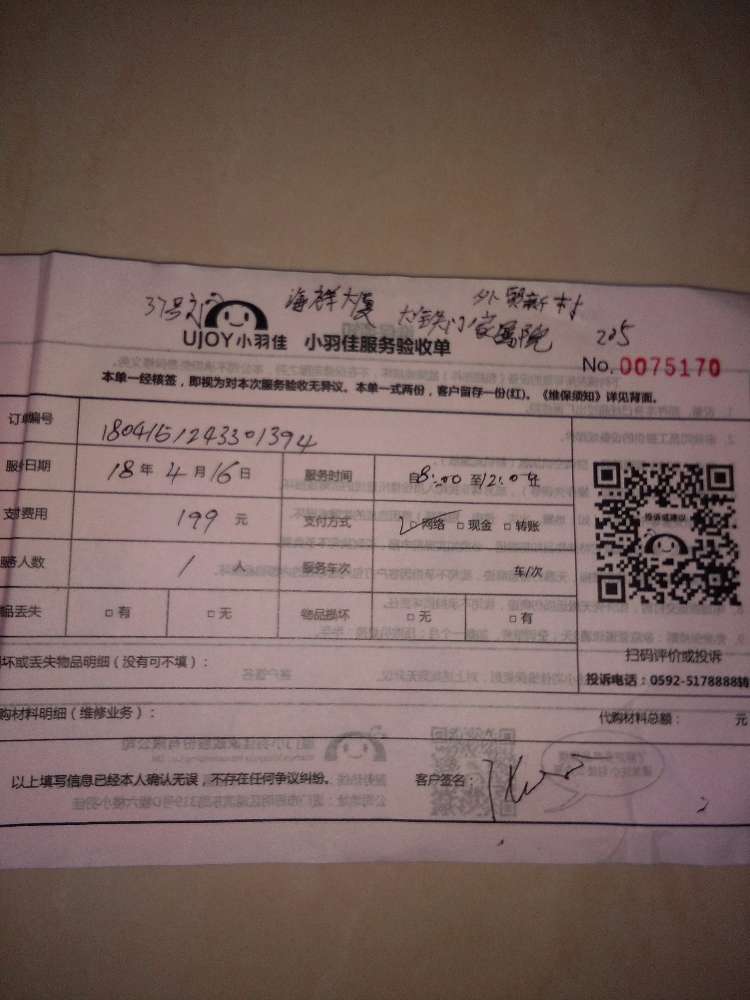 37号 海祥大厦 外贸新村
大铁门家属院 205
UJOY小羽佳 小羽佳服务验收单
No. 0075170
本单一经核签，即视为对本次服务验收无异议。本单一式两份，客户留存一份(红)。《维保须知》详见背面。
订单编号 1804151243301394
服务日期 18年4月16日 服务时间 自8:00至12:0止
支付费用 199元 支付方式 网络 现金 转账
服务人数 1人 服务车次 车/次
品丢失 有 无 物品损坏 无 有
投诉或建议
扫码评价或投诉
坏或丢失物品明细（没有可不填）：
投诉电话：0592-5178888转
购材料明细（维修业务）： 代购材料总额： 元
以上填写信息已经本人确认无误，不存在任何争议纠纷。 客户签名：